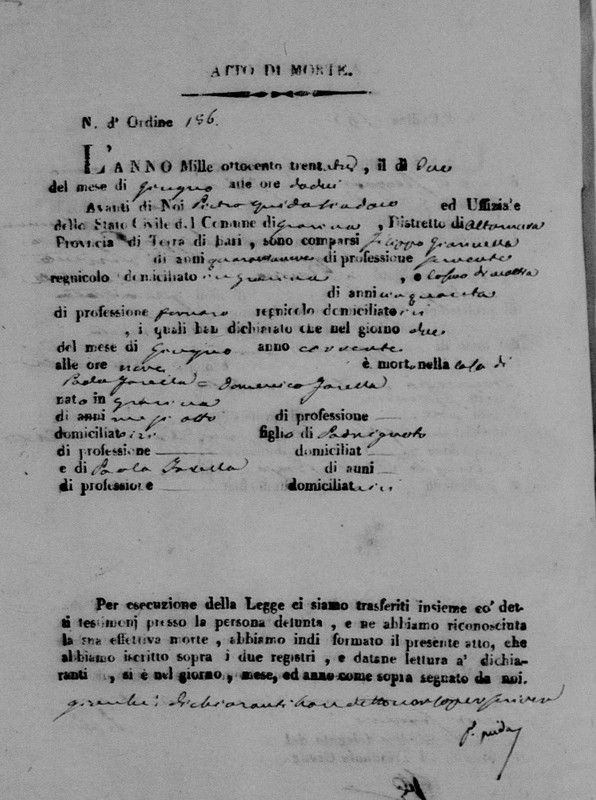 ATTO DI MORTE.
N. d' Ordine 186.
L'ANNO Mille ottocento trenta, il dì due
del mese di giugno alle ore dodici.
Avanti di Noi Pietro Guida Sindaco ed Uffiziale
dello Stato Civile del Comune di Gravina, Distretto di Altamura
Provincia di Terra di Bari, sono comparsi Filippo Gramegna
di anni quarantanove di professione
regnicolo domiciliato in Gravina, e
di anni cinquanta
di professione fornaro regnicolo domiciliato ivi
, i quali han dichiarato che nel giorno due
del mese di Giugno anno corrente
alle ore nove è morto nella casa di
Paola Domenico
nato in Gravina
di anni mesi otto di professione —
domiciliato ivi figlio di Padre ignoto
di professione — domiciliat —
e di Paola di anni —
di professione — domiciliata ivi
Per esecuzione della Legge ci siamo trasferiti insieme co' det-
ti testimonj presso la persona defunta, e ne abbiamo riconosciuta
la sua effettiva morte, abbiamo indi formato il presente atto, che
abbiamo iscritto sopra i due registri, e datane lettura a' dichia-
ranti, si è nel giorno, mese, ed anno come sopra segnato da noi.
giacchè i dichiaranti han detto non saper scrivere
P. Guida